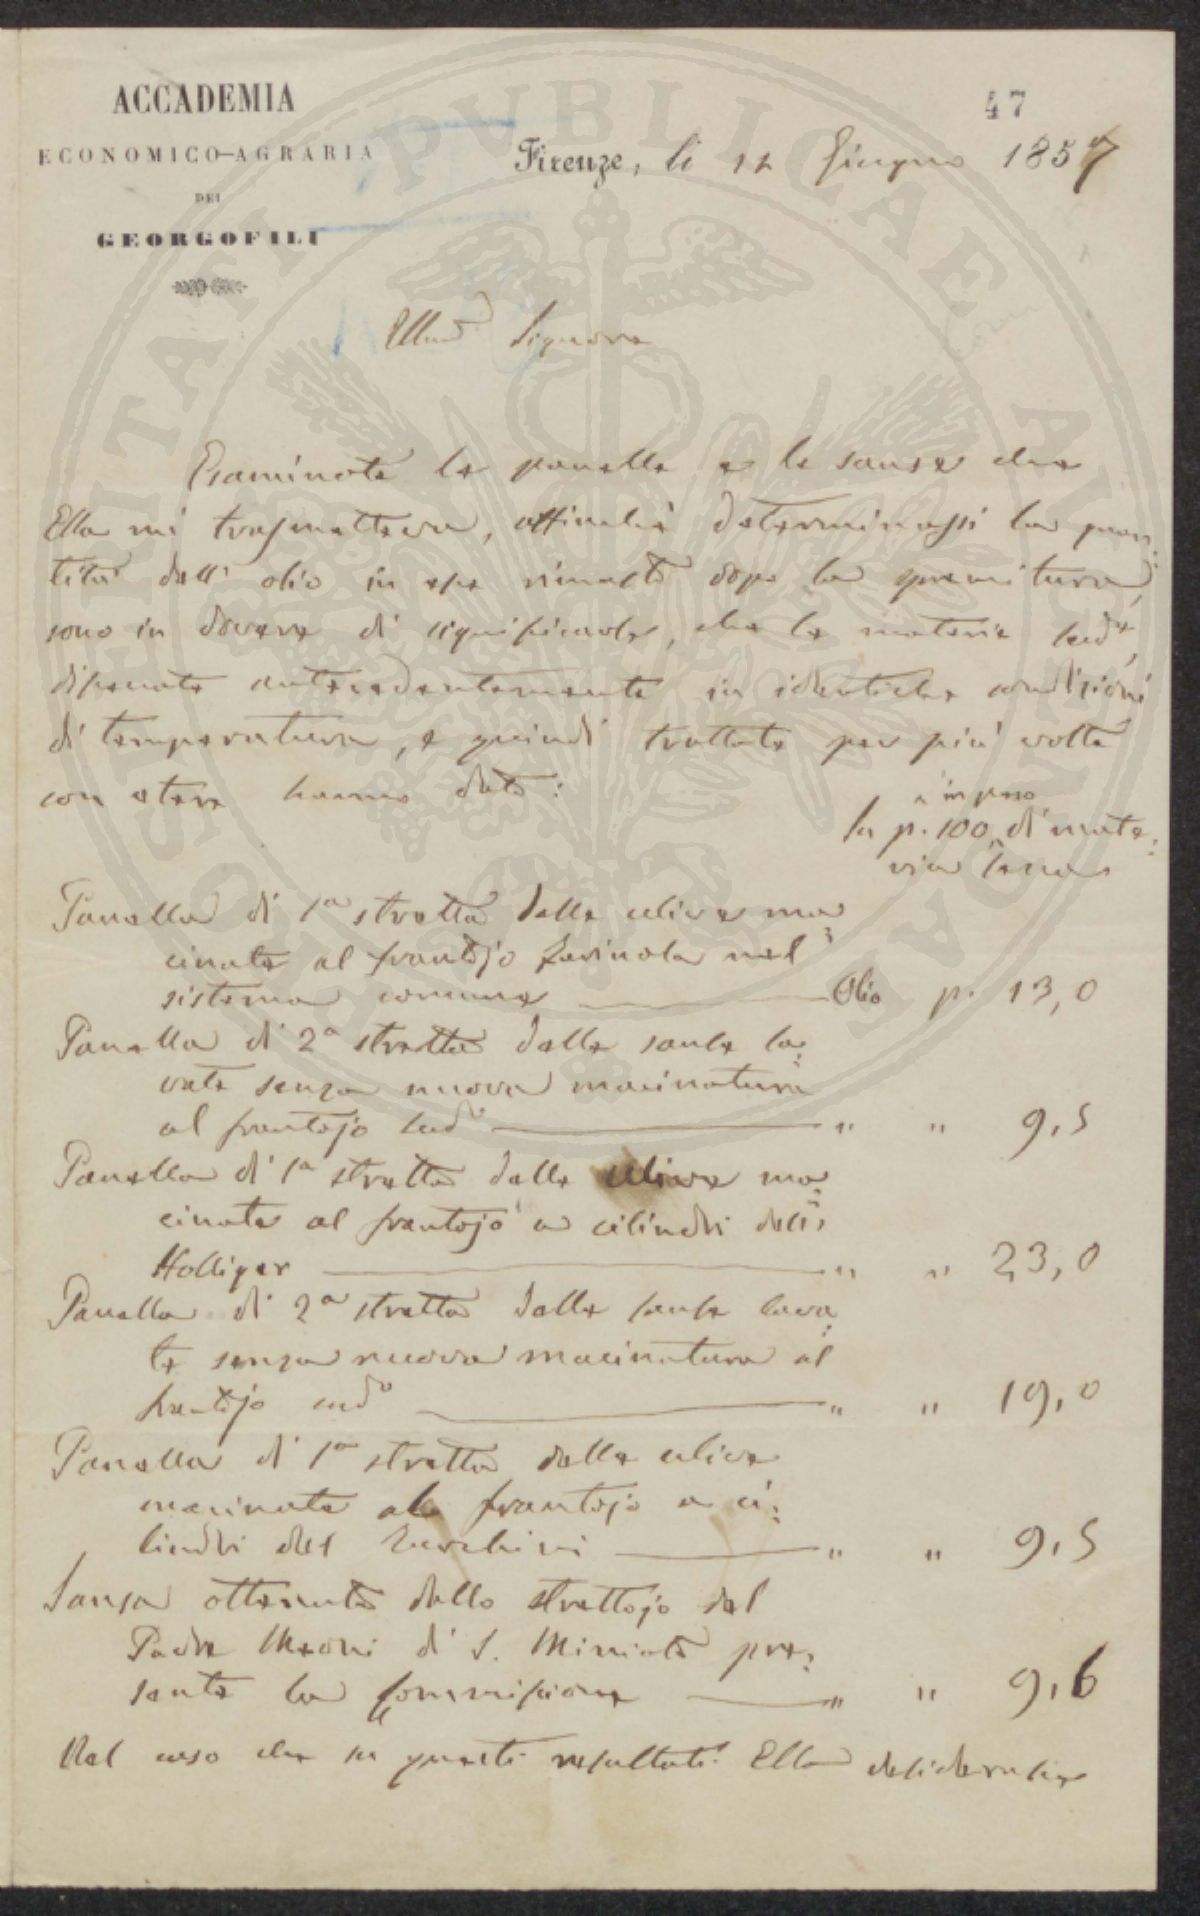 ACCADEMIA
ECONOMICO-AGRARIA
DEI
GEORGOFILI
47
Firenze, li 12 Giugno 1857
Illmo Signore
Esaminate le panelle e le sanse che
Ella mi trasmetteva, affinchè determinassi la quan:
tità dell' olio in esse rimasto dopo la spremitura,
sono in dovere di significarle, che le materie sudte,
disseccate antecedentemente in identiche condizioni
di temperatura, e quindi trattate per più volte
con etere hanno dato:
in peso
In p. 100 di mate:
ria secca
Panella di 1a stretta delle ulive ma:
cinate al frantojo Farinola nel
sistema comune Olio p. 13,0
Panella di 2a stretta delle sanse la:
vate senza nuova macinatura
al frantojo sudo " " 9,5
Panella di 1a stretta delle ulive ma:
cinate al frantojo a cilindri dell'
Holliger " " 23,0
Panella di 2a stretta delle sanse lava:
te senza nuova macinatura al
frantojo sudo " " 19,0
Panella di 1a stretta delle ulive
macinate al frantojo a ci:
lindri del " " 9,5
Sansa ottenuta dallo strettojo del
Padre Meoni di S. Miniato pre:
sente la Commissione " " 9,6
Nel caso che su questi resultati Ella desiderasse